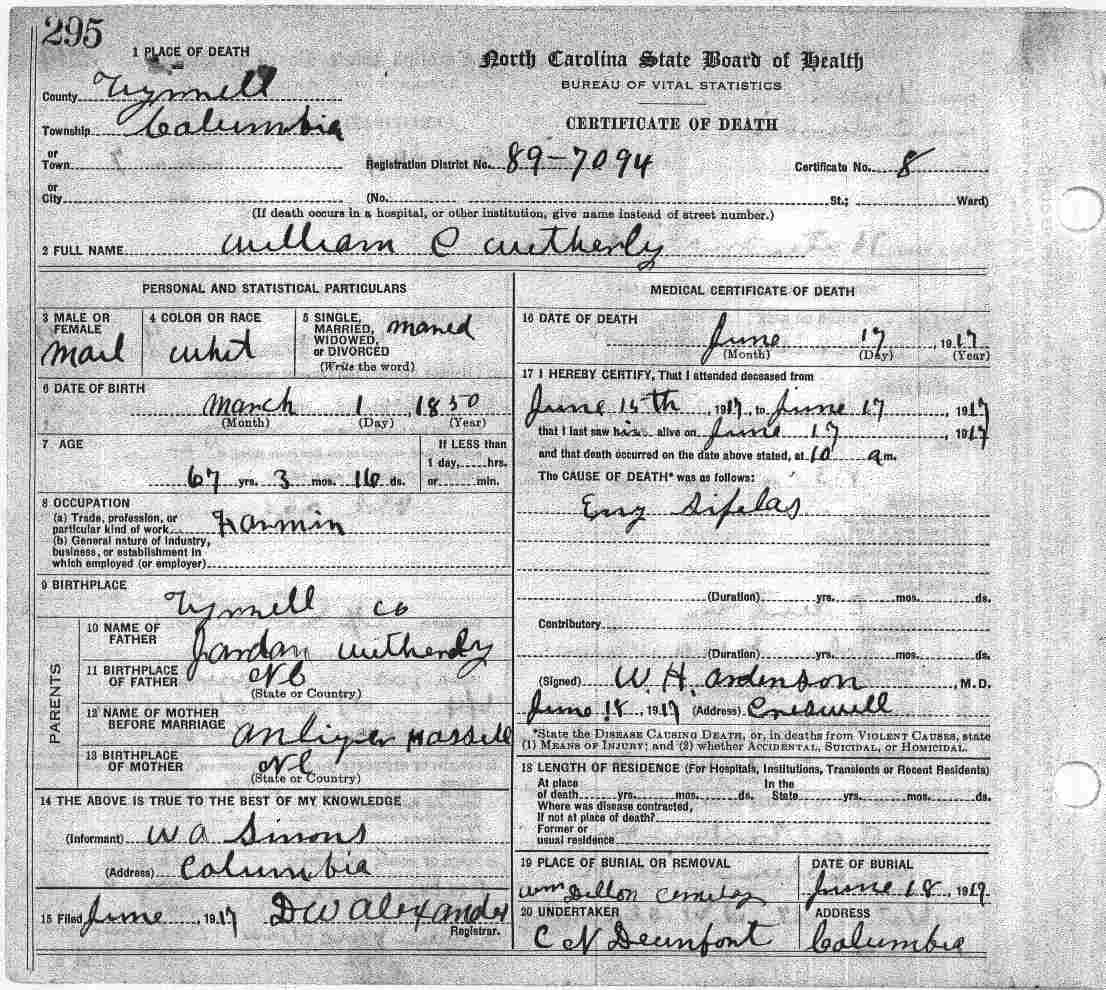 295
1 PLACE OF DEATH
North Carolina State Board of Health
BUREAU OF VITAL STATISTICS
CERTIFICATE OF DEATH
County Tyrrell
Township Columbia
or Town
Registration District No. 89-7094
Certificate No. 8
or City
(No. St.; Ward)
(If death occurs in a hospital, or other institution, give name instead of street number.)
2 FULL NAME William C Witherly
PERSONAL AND STATISTICAL PARTICULARS
3 MALE OR FEMALE Mail
4 COLOR OR RACE whit
5 SINGLE, MARRIED, WIDOWED, or DIVORCED maried
(Write the word)
6 DATE OF BIRTH
March 1 1850
(Month) (Day) (Year)
7 AGE
If LESS than
1 day, hrs.
67 yrs. 3 mos. 16 ds. or min.
8 OCCUPATION
(a) Trade, profession, or
particular kind of work Farmin
(b) General nature of Industry,
business, or establishment in
which employed (or employer)
9 BIRTHPLACE
Tyrrell co
PARENTS
10 NAME OF FATHER Jordan Witherly
11 BIRTHPLACE OF FATHER NC
(State or Country)
12 NAME OF MOTHER BEFORE MARRIAGE Hassell
13 BIRTHPLACE OF MOTHER NC
(State or Country)
14 THE ABOVE IS TRUE TO THE BEST OF MY KNOWLEDGE
(Informant) W A Simons
(Address) Columbia
15 Filed June, 1917 D W Alexander
Registrar.
MEDICAL CERTIFICATE OF DEATH
16 DATE OF DEATH
June 17 1917
(Month) (Day) (Year)
17 I HEREBY CERTIFY, That I attended deceased from
June 15th, 1917, to June 17, 1917
that I last saw him alive on June 17, 1917
and that death occurred on the date above stated, at 10 a m.
The CAUSE OF DEATH* was as follows:
Erry Sipelas
(Duration) yrs. mos. ds.
Contributory
(Duration) yrs. mos. ds.
(Signed) W. H. Ardenson, M.D.
June 18, 1917 (Address) Creswell
*State the DISEASE CAUSING DEATH, or, in deaths from VIOLENT CAUSES, state
(1) MEANS OF INJURY; and (2) whether ACCIDENTAL, SUICIDAL, or HOMICIDAL.
18 LENGTH OF RESIDENCE (For Hospitals, Institutions, Transients or Recent Residents)
At place of death yrs. mos. ds. In the State yrs. mos. ds.
Where was disease contracted,
If not at place of death?
Former or
usual residence
19 PLACE OF BURIAL OR REMOVAL
Wm Dillon
DATE OF BURIAL
June 18, 1917
20 UNDERTAKER
C N
ADDRESS
Columbia